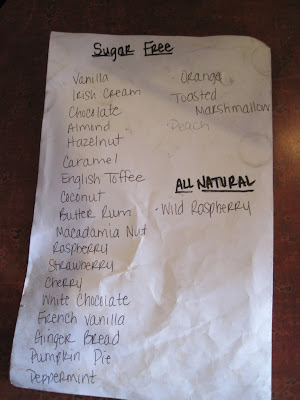 Sugar Free
Vanilla
Irish Cream
Chocolate
Almond
Hazelnut
Caramel
English Toffee
Coconut
Butter Rum
Macadamia Nut
Raspberry
Strawberry
Cherry
White Chocolate
French Vanilla
Ginger Bread
Pumpkin Pie
Peppermint
- Orange
Toasted
Marshmallow
- Peach
ALL NATURAL
- Wild Raspberry